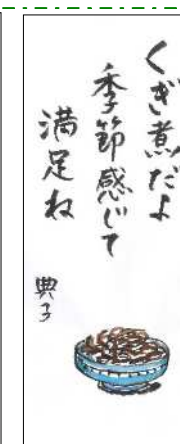 くぎ煮だよ
季節感じて
満足ね
典子